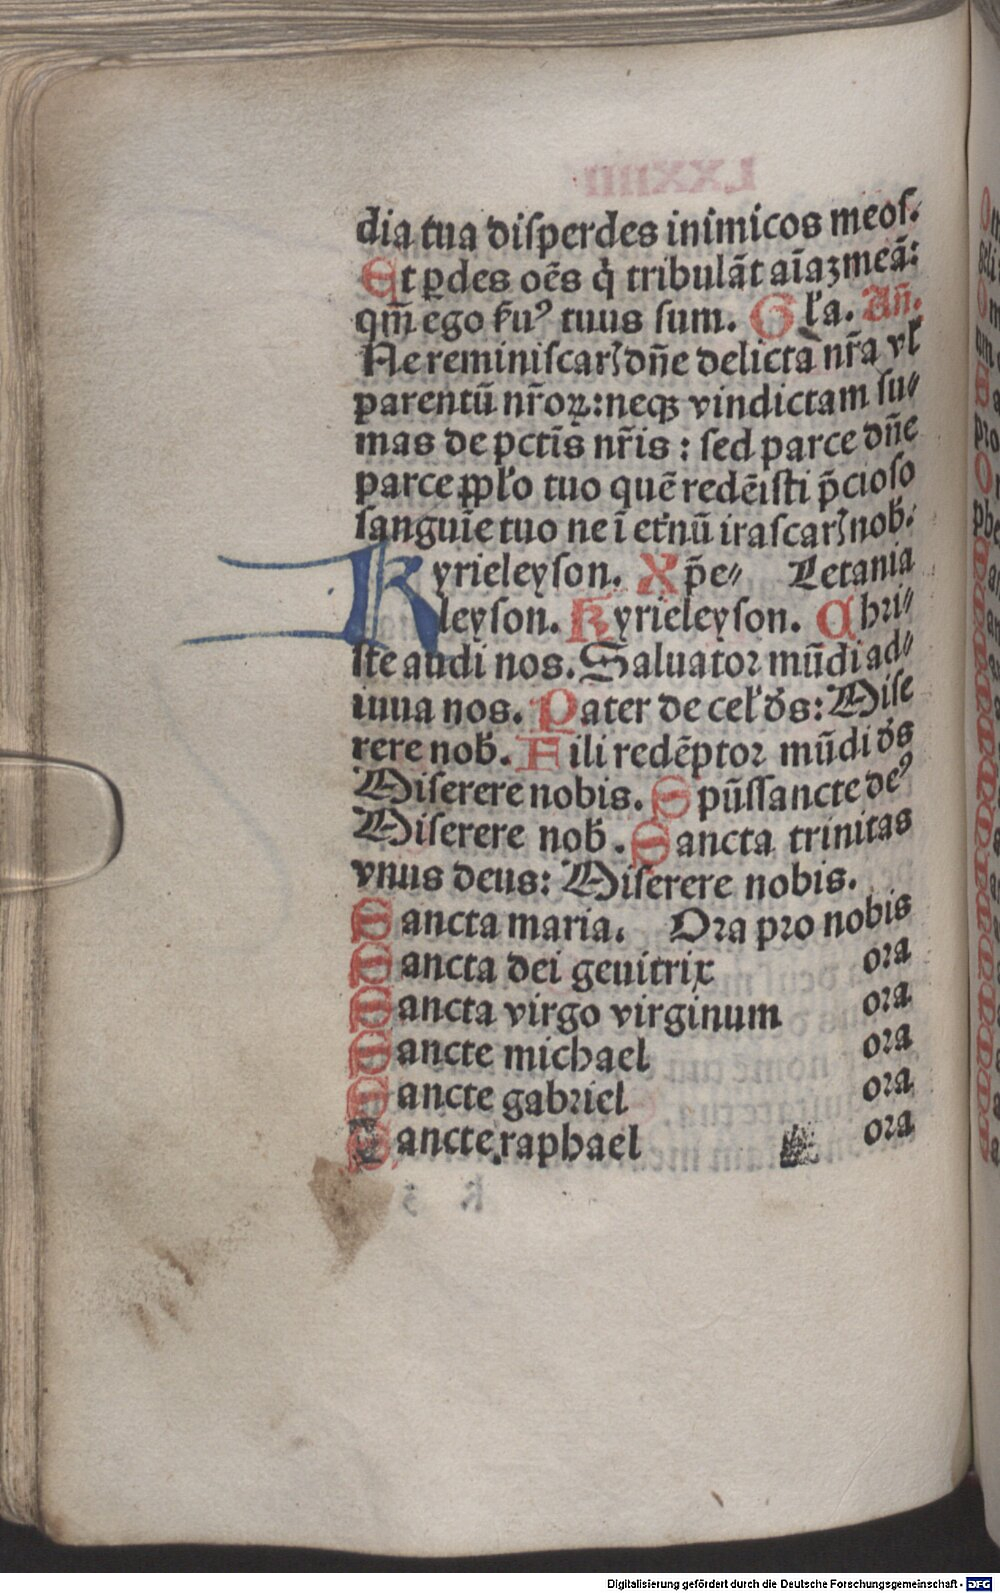 dia tua diſperdes inimicos meoſ.
Et ꝑdes oēs q̇ tribulāt aīaꝫ meā:
qm̄ ego ẜuꝰ tuus ſum. Gľa. Añ.
Ne reminiſcarꝭ dn̄e delicta nr̄a vľ
parentū nr̄oꝝ: neqꝫ vindictam ſu⸗
mas de pctīs nr̄is : ſed parce dn̄e
parce ppľo tuo quē redēiſti p̄cioſo
ſanguīe tuo ne ī et̉nū iraſcarꝭ nob̉.
Kyrieleyſon. Xp̄e⸗ Letania
leyſon. Kyrieleyſon. Chri⸗
ſte audi nos. Saluator mūdi ad⸗
iuua nos. Pater de celꝭ ds̄: Miſe
rere nob̉. Fili redēptor mūdi ds̄
Miſerere nobis. Spūſſancte deꝰ
Miſerere nob̉. Sancta trinitas
vnus deus: Miſerere nobis.
Sancta maria. Ora pro nobis
Sancta dei genitrix ora
Sancta virgo virginum ora
Sancte michael ora
Sancte gabriel ora
Sancte raphael ora
Digitalisierung gefördert durch die Deutsche Forschungsgemeinschaft - DFG